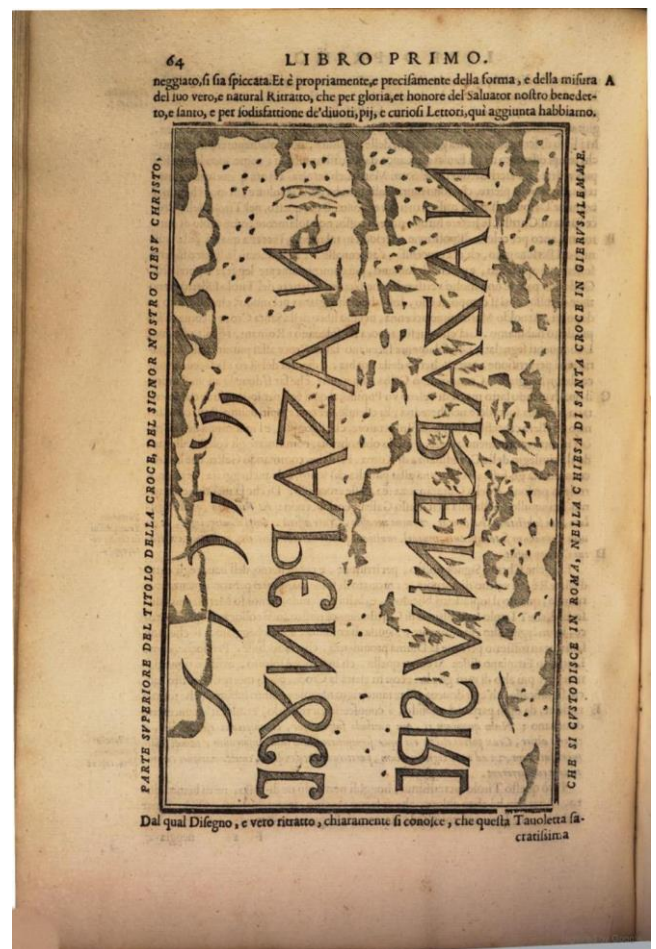 64 LIBRO PRIMO.
neggiato,ſi ſia ſpiccata.Et è propriamente,e preciſamente della forma, e della miſura A
del ſuo vero,e natural Ritratto, che per gloria,et honore del Saluator noſtro benedet-
to,e ſanto, e per ſodisfattione de'diuoti,pij, e curioſi Lettori,qui aggiunta habbiamo.
PARTE SVPERIORE DEL TITOLO DELLA CROCE, DEL SIGNOR NOSTRO GIESV CHRISTO,
NAZAPENȢCE
NAZARENVSRE
CHE SI CVSTODISCE IN ROMA, NELLA CHIESA DI SANTA CROCE IN GIERVSALEMME.
Dal qual Diſegno, e vero ritratto, chiaramente ſi conoſce, che queſta Tauoletta ſa-
cratiſſima